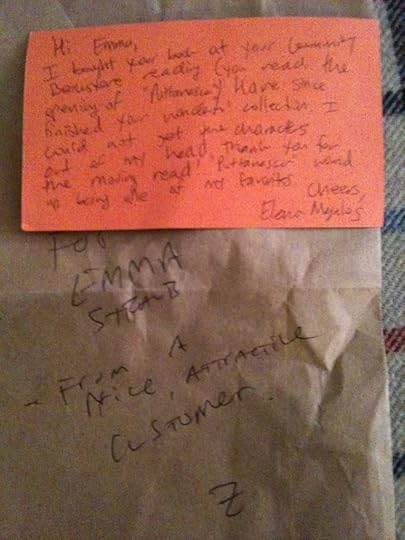 Hi Emma,
I bought your book at your Community
Bookstore reading (you read the
opening of "Puttanesca") Have since
finished your wonderful collection. I
could not get the characters
out of my head. Thank you for
the moving read! "Puttanesca" wound
up being one of my favorites
Cheers,
Elena Megalos
For
EMMA
STRAUB
- From A
Nice, Attractive
Customer.
Z